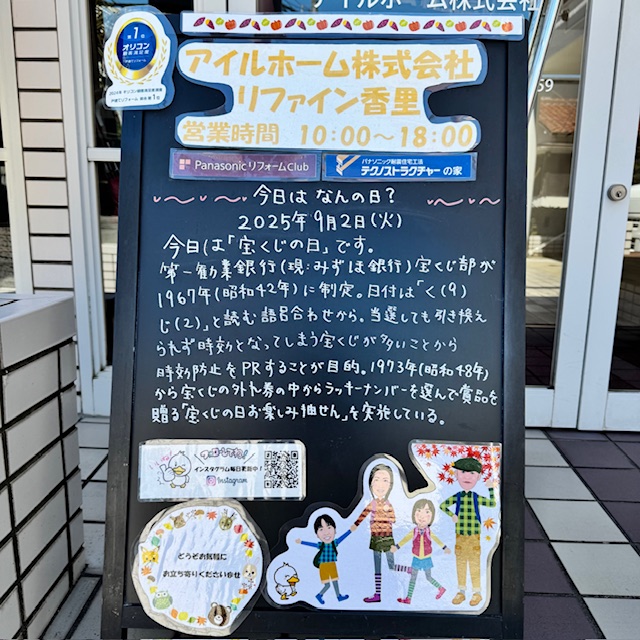 アイルホーム株式会社
第1位
オリコン
顧客満足度
アイルホーム株式会社
リファイン香里
営業時間 10:00～18:00
Panasonic リフォーム Club
パナソニック耐震住宅工法
テクノストラクチャーの家
59
今日は なんの日？
2025年9月2日(火)
今日は「宝くじの日」です。
第一勧業銀行(現:みずほ銀行)宝くじ部が
1967年(昭和42年)に制定。日付は「く(9)
じ(2)」と読む語呂合わせから。当選しても引き換え
られず時効となってしまう宝くじが多いことから
時効防止をPRすることが目的。1973年(昭和48年)
から宝くじの外れ券の中からラッキーナンバーを選んで賞品を
贈る「宝くじの日お楽しみ抽せん」を実施している。
フォローしてね！
インスタグラム毎日更新中！
Instagram
どうぞお気軽に
お立ち寄りくださいませ